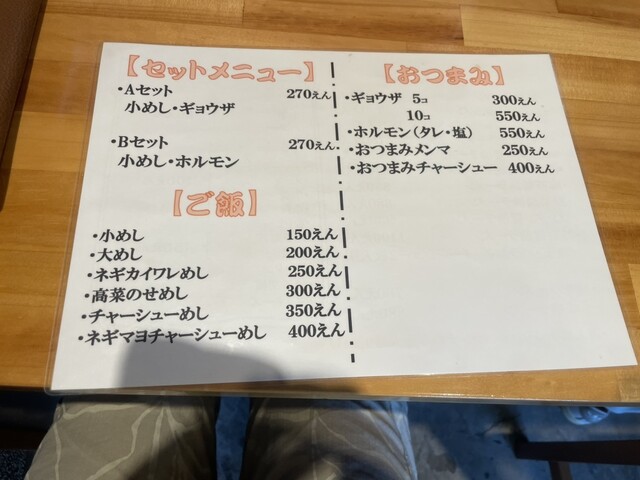 【セットメニュー】
・Aセット 270えん
小めし・ギョウザ
・Bセット 270えん
小めし・ホルモン
【ご飯】
・小めし 150えん
・大めし 200えん
・ネギカイワレめし 250えん
・高菜のせめし 300えん
・チャーシューめし 350えん
・ネギマヨチャーシューめし 400えん
【おつまみ】
・ギョウザ 5コ 300えん
10コ 550えん
・ホルモン(タレ・塩) 550えん
・おつまみメンマ 250えん
・おつまみチャーシュー 400えん